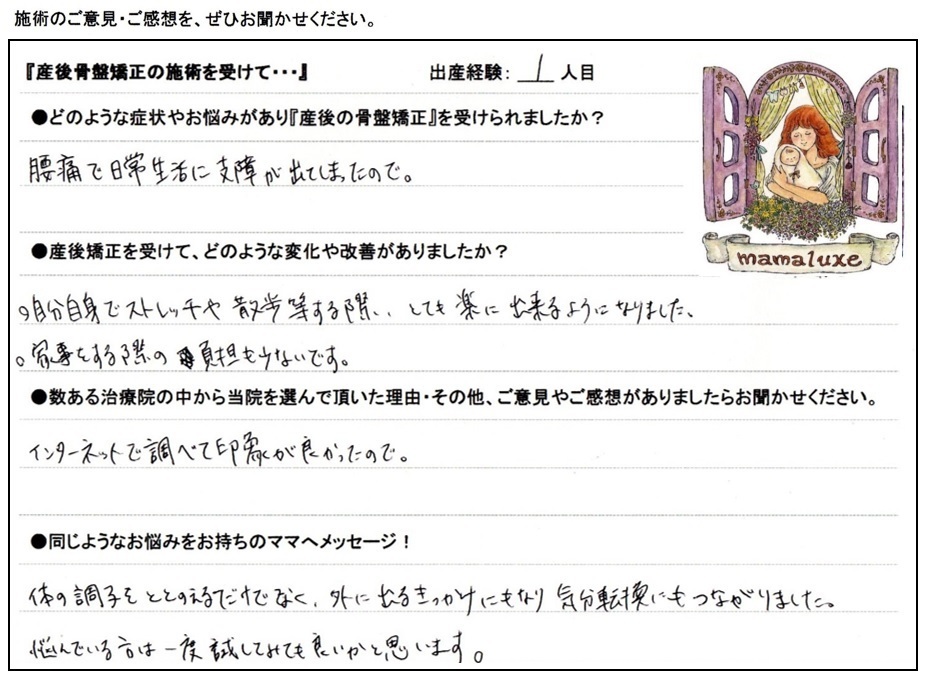 施術のご意見・ご感想を、ぜひお聞かせください。
『産後骨盤矯正の施術を受けて・・・』 出産経験: 1 人目
●どのような症状やお悩みがあり『産後の骨盤矯正』を受けられましたか？
腰痛で日常生活に支障が出てしまったので。
mamaluxe
●産後矯正を受けて、どのような変化や改善がありましたか？
○自分自身でストレッチや散歩等する際、とても楽に出来るようになりました、
○家事をする際の負担も少ないです。
●数ある治療院の中から当院を選んで頂いた理由・その他、ご意見やご感想がありましたらお聞かせください。
インターネットで調べて印象が良かったので。
●同じようなお悩みをお持ちのママへメッセージ！
体の調子をととのえるだけでなく、外に出るきっかけにもなり気分転換にもつながりました。
悩んでいる方は一度試してみても良いかと思います。